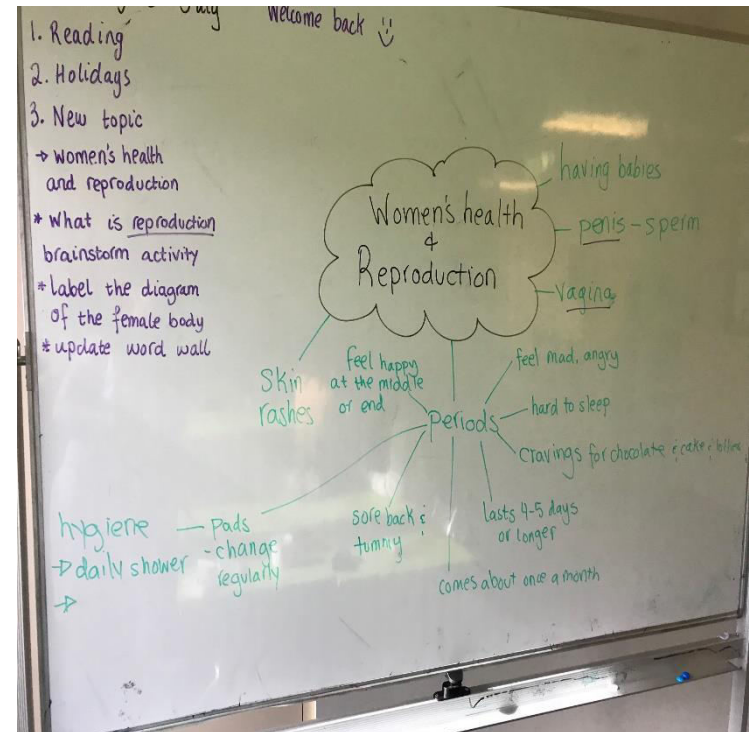 July Welcome back
1. Reading
2. Holidays
3. New topic
→ women's health
and reproduction
* What is reproduction
brainstorm activity
* Label the diagram
of the female body
* update word wall
Women's health
&
Reproduction
having babies
penis - sperm
Vagina
Skin
rashes
feel happy
at the middle
or end
Periods
feel mad, angry
hard to sleep
cravings for chocolate & cake &
lasts 4-5 days
or longer
comes about once a month
sore back &
tummy
pads
- change
regularly
hygiene
→ daily shower
→